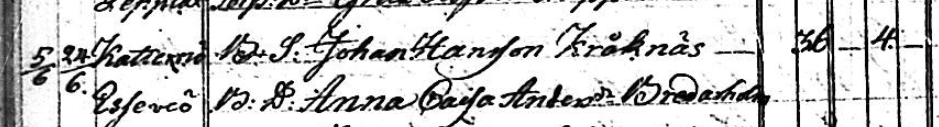 5/6 24/6. Katternö B. S. Johan Hansson Kråknäs — 36 — 4 —
Esseveö B. D. Anna Caisa Anders dr Bredarholm